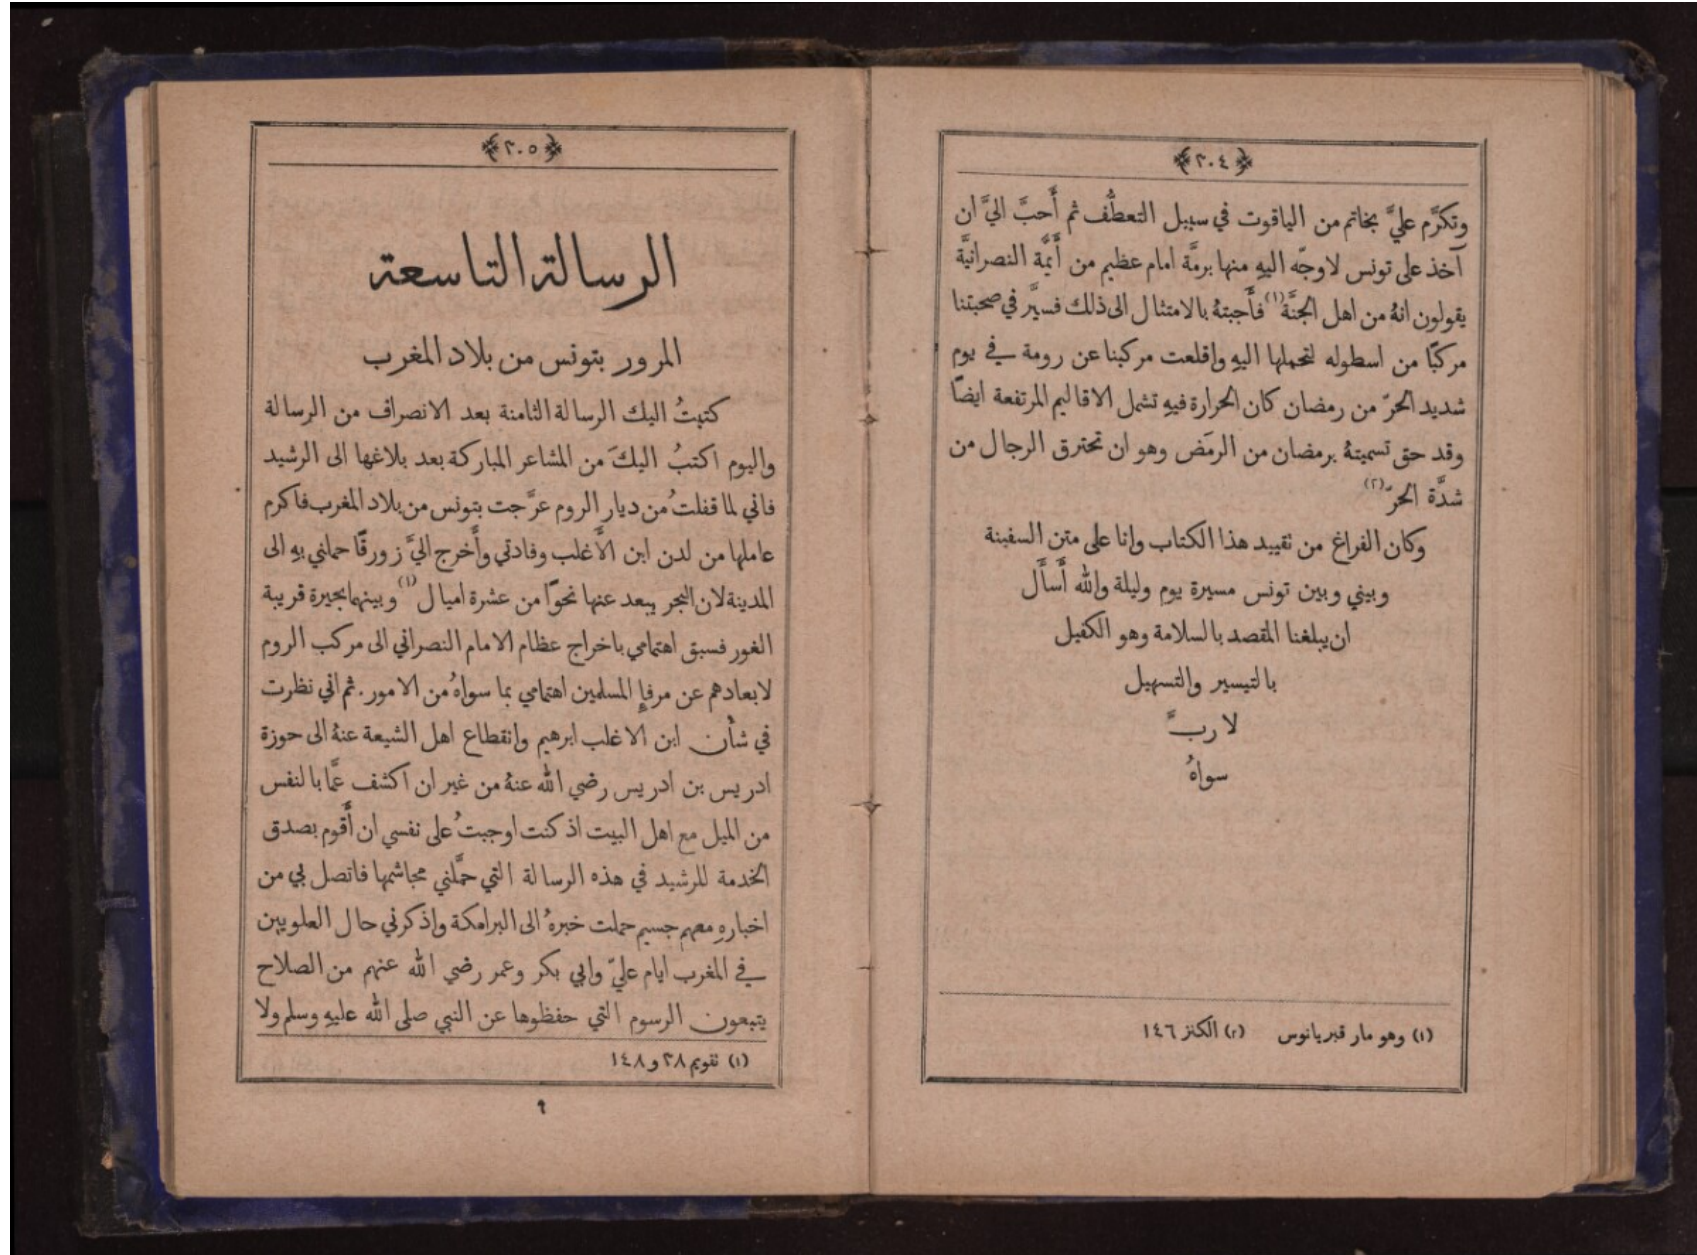 ﴿٢٠٤﴾
وتكرَّم عليَّ بخاتم من الياقوت في سبيل التعطُّف ثم أَحبَّ اليَّ ان
آخذ على تونس لاوجّه اليهِ منها برمَّة امام عظيم من أَيمَّة النصرانيَّة
يقولون انهُ من اهل الجنَّة(١) فأَجبتهُ بالامتثال الى ذلك فسيَّر في صحبتنا
مركبًا من اسطوله لتحملها اليهِ واقلعت مركبنا عن رومة في يوم
شديد الحرّ من رمضان كان الحرارة فيهِ تشمل الاقاليم المرتفعة ايضًا
وقد حق تسميتهُ برمضان من الرمَض وهو ان تحترق الرجال من
شدَّة الحرّ(٢)
وكان الفراغ من تقييد هذا الكتاب وانا على متن السفينة
وبيني وبين تونس مسيرة يوم وليلة والله أَسأَل
ان يبلغنا المقصد بالسلامة وهو الكفيل
بالتيسير والتسهيل
لا ربَّ
سواهُ
(١) وهو مار قبريانوس (٢) الكنز ١٤٦
﴿٢٠٥﴾
الرسالة التاسعة
المرور بتونس من بلاد المغرب
كتبتُ اليك الرسالة الثامنة بعد الانصراف من الرسالة
واليوم اكتبُ اليكَ من المشاعر المباركة بعد بلاغها الى الرشيد
فاني لما قفلتُ من ديار الروم عرَّجت بتونس من بلاد المغرب فاكرم
عاملها من لدن ابن الأَغلب وفادتي وأَخرج اليَّ زورقًا حملني بهِ الى
المدينة لان البحر يبعد عنها نحوًا من عشرة اميال(١) وبينهما بحيرة قريبة
الغور فسبق اهتمامي باخراج عظام الامام النصراني الى مركب الروم
لابعادهم عن مرفإِ المسلمين اهتمامي بما سواهُ من الامور. ثم اني نظرت
في شأن ابن الاغلب ابرهيم وانقطاع اهل الشيعة عنهُ الى حوزة
ادريس بن ادريس رضي الله عنهُ من غير ان اكشف عمَّا بالنفس
من الميل مع اهل البيت اذ كنت اوجبتُ على نفسي ان أَقوم بصدق
الخدمة للرشيد في هذه الرسالة التي حمَّلني مجاشمها فاتصل بي من
اخبارهِ مهم جسيم حملت خبرهُ الى البرامكة واذكرني حال العلويين
في المغرب ايام عليّ وابي بكر وعمر رضي الله عنهم من الصلاح
يتبعون الرسوم التي حفظوها عن النبي صلى الله عليهِ وسلم ولا
(١) تقويم ٢٨ و١٤٨
٩